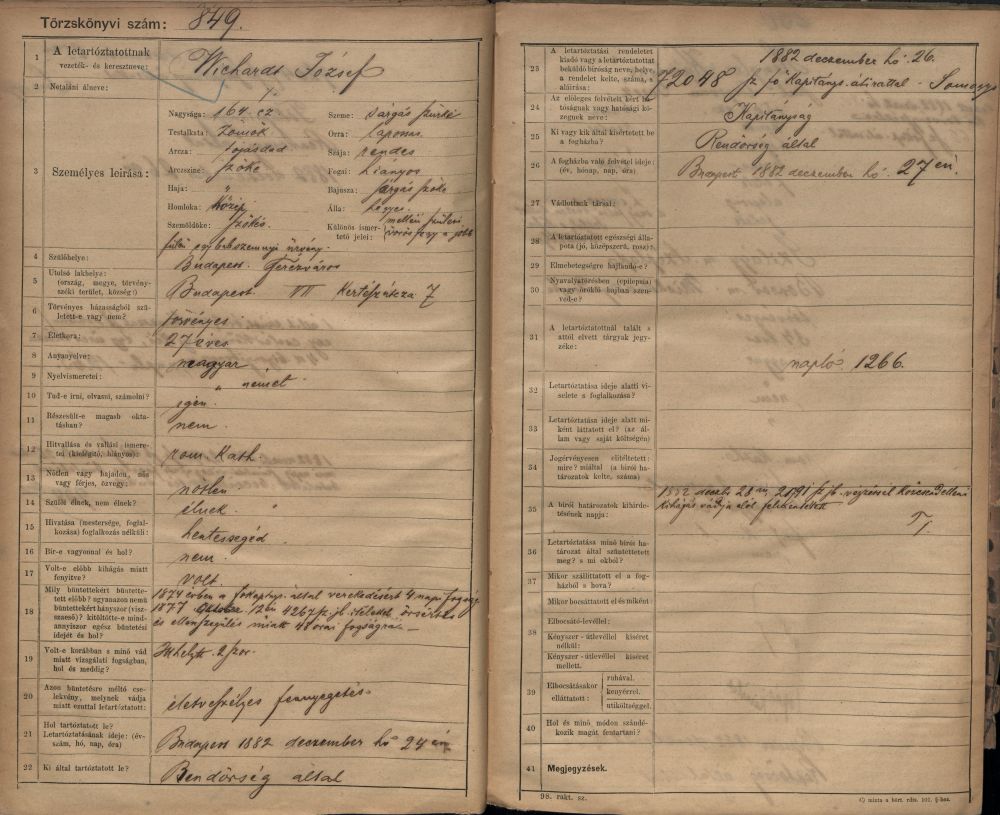 Törzskönyvi szám: 849.
1 A letartóztatottnak vezeték- és keresztneve: Wichardt József
2 Netaláni álneve: "
3 Személyes leirása:
Nagysága: 164. cz. Szeme: sárgás szürke
Testalkata: Zömök Orra: tapos
Arcza: tojásdad Szája: rendes
Arczszine: szőke Fogai: hiányos
Haja: " Bajusza: sárgás szőke
Homloka: közép Álla: hegyes.
Szemöldöke: szőkés. Különös ismertető jelei: mellén szüleési vörös jegy a jobb
fülén egy babszemnyi
4 Szülőhelye: Budapest. Terézváros
5 Utolsó lakhelye: (ország, megye, törvényszéki terület, község:) Budapest. VII Kertész utcza 7
6 Törvényes házasságból született-e vagy nem? törvényes.
7 Életkora: 27 éves
8 Anyanyelve: magyar
9 Nyelvismeretei: " német
10 Tud-e irni, olvasni, számolni? igen.
11 Részesült-e magasb oktatásban? nem.
12 Hitvallása és vallási ismeretei (kielégitő, hiányos): rom. Kath.
13 Nőtlen vagy hajadon, nős vagy férjes, özvegy: nőtlen
14 Szülői élnek, nem élnek? élnek. "
15 Hivatása (mestersége, foglalkozása) foglalkozás nélküli: hentessegéd
16 Bir-e vagyonnal és hol? nem.
17 Volt-e előbb kihágás miatt fenyitve? volt.
18 Mily büntettekért büntettetett előbb? ugyanazon nemü büntettekért hányszor (visszaeső)? kitöltötte-e mindannyiszor egész büntetési idejét és hol?
1874 évben a főkapitnys. által verekedésért 4 napi fogság
1877 12én 4267 sz. jb. itélettel őrsértés
és ellenszegülés miatt 48 órai fogságra —
19 Volt-e korábban s minő vád miatt vizsgálati fogságban, hol és meddig? Itt helytt. 2 szor.
20 Azon büntetésre méltó cselekvény, melynek vádja miatt ezuttal letartóztatott: életveszélyes fenyegetés
21 Hol tartóztatott le? Letartóztatásának ideje: (évszám, hó, nap, óra) Budapest 1882 deczember hó 24 én
22 Ki által tartóztatott le? Rendőrség által
23 A letartóztatási rendeletet kiadó vagy a letartóztatottat beküldő biróság neve, helye, a rendelet kelte, száma, s aláirása: 1882 deczember hó 26.
72048 sz. fő Kapitánys. átirattal -
24 Az előleges felvételt kért hatóságnak vagy hatósági közegnek neve: Kapitányság
25 Ki vagy kik által kisértetett be a fogházba? Rendőrség által
26 A fogházba való felvétel ideje: (év, hónap, nap, óra) Budapest 1882 deczember hó 27 én.
27 Vádlottnak társai:
28 A letartóztatott egészségi állapota (jó, középszerü, rosz):
29 Elmebetegségre hajlandó-e?
30 Nyavalyatörésben (epilepsia) vagy öröklő bajban szenved-e?
31 A letartóztatottnál talált s attól elvett tárgyak jegyzéke: napló 1266.
32 Letartóztatás ideje alatti viselete s foglalkozása?
33 Letartóztatás ideje alatt miként láttatott el? (az állam vagy saját költségén)
34 Jogérvényesen elitéltetett: mire? miáltal (a birói határozatok kelte, száma)
35 A birói határozatok kihirdetésének napja: 1882 deczbr 28 án 20191 sz. jb. végzéssel Közcsend elleni
Kihágás vádja alól felmentetett
36 Letartóztatása minő birói határozat által szüntettetett meg? s mi okból?
37 Mikor szállittatott el a fogházból s hova?
38 Mikor bocsáttatott el és miként:
Elbocsátó-levéllel:
Kényszer-útlevéllel kiséret nélkül:
Kényszer-útlevéllel kiséret mellett.
39 Elbocsátásakor elláttatott: ruhával. kenyérrel. utiköltséggel.
40 Hol és minő módon szándékozik magát fentartani?
41 Megjegyzések.
98. rakt. sz.
C) minta a bört. rdts. 101. §-hoz.